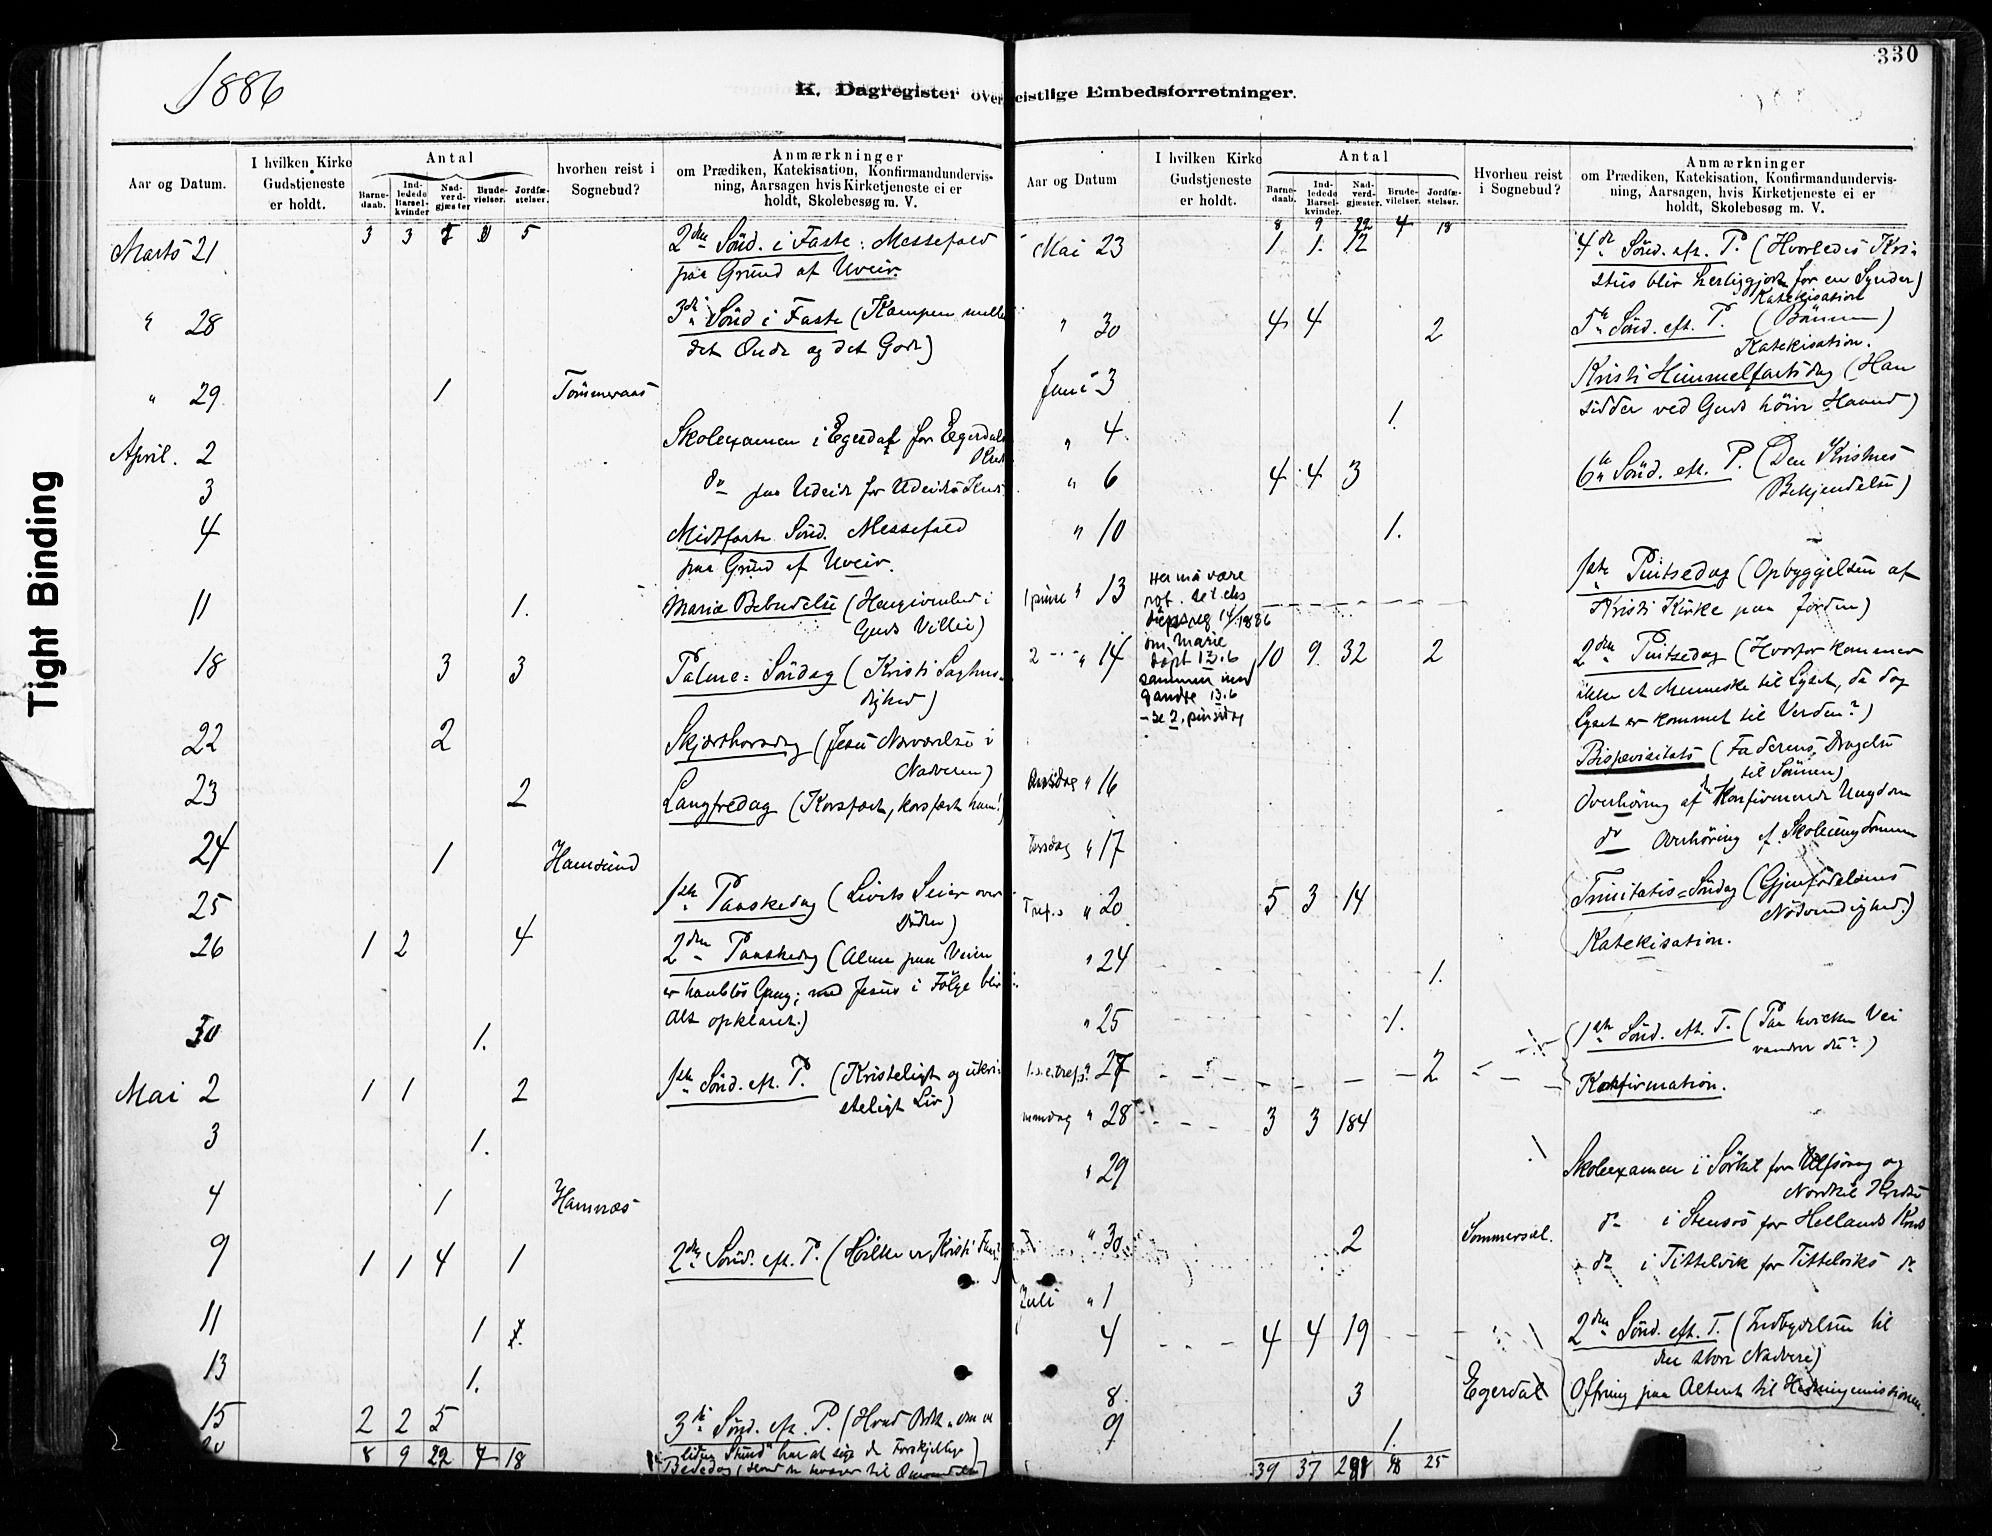 330
1886
K. Dagregister over geistlige Embedsforretninger.
Aar og Datum.
I hvilken Kirke Gudstjeneste er holdt.
Antal
Barne-daab.
Ind-ledede Barsel-kvinder
Nad-verd-gjæster
Brude-vielser.
Jordfæ-stelser.
hvorhen reist i Sognebud?
Anmærkninger
om Prædiken, Katekisation, Konfirmandundervis-
ning, Aarsagen hvis Kirketjeneste ei er
holdt, Skolebesøg m. V.
3 3 5
Marts 21 2den Sönd. i Faste: Messefald
paa Grund af Uveir.
" 28 3die Sönd i Faste (Kampen melle
det Onde og det Gode)
" 29 1 Tömmeraas
April. 2 Skolexamen i Egerdal for Egerdals
Kreds
3 do paa Udeide for Udeides Kreds
4 Midfaste Sönd. Messefald
paa Grund af Uveir.
11 1. Mariæ Bebudelse (Hengivenhed i
Guds Villie)
18 3 3 Palme=Söndag (Kristi Sagtmo-
dighed)
22 2 Skjærthorsdag (Jesu Nærværelse i
Nadveren)
23 2 Langfredag (Korsfæst, korsfæst ham!)
24 1 Hamsund
25 1ste Paaskedag (Livets Seier over
Döden)
26 1 2 4 2den Paaskedag (Alene paa Veien
er haablös Gang; med Jesus i Fölge blir
Alt opklaret.)
30 1.
Mai 2 1 1 2 1ste Sönd. eft. P. (Kristeligt og ukri-
steligt Liv)
3 1.
4 1 Hamnæs
9 1 1 4 1 2den Sönd. eft. P. (Hvilke er Kristi Faar?)
11 1
13 1.
15 2 2 5 3die Sönd. eft. P. (Hvad Ordet "om en
liden Stund" har at sige de Forskjellige)
20 8 9 22 4 18 Bededag
Aar og Datum
I hvilken Kirke Gudstjeneste er holdt.
Antal
Barne-daab.
Ind-ledede Barsel-kvinder.
Nad-verd-gjæster.
Brude-vilelser.
Jordfæ-stelser.
Hvorheu reist i Sognebud?
Anmærkninger
om Prædiken, Katekisation, Konfirmandundervis-
ning, Aarsagen, hvis Kirketjeneste ei er
holdt, Skolebesøg m. V.
8 9 22 4 18
Mai 23 1 1. 12 4de Sönd. eft. P. (Hvorledes Kri-
stus blir herliggjort for en Synder)
Katekisation
" 30 4 4 2 5te Sönd. eft. P. (Bönnen)
Katekisation.
Juni 3 Kristi Himmelfartsdag (Han
sidder ved Guds höire Haand)
" 4 1.
" 6 4 4 3 6te Sönd. eft. P. (Den Kristnes
Bekjendelse)
" 10 1.
1 pinse " 13 Her må være
rot. Se t.eks
dåpsreg 14/1886
om Marie
døpt 13.6
sammen med
9 andre 13.6
- se 2. pinsedag
1ste Pintsedag (Opbyggelsen af
Kristi Kirke paa Jorden)
2 - " - " 14 10 9 32 2 2den Pintsedag (Hvorfor kommer
ikke et Menneske til Lyset, da dog
Lyset er kommet til Verden?)
Bispevisitats (Faderens Dragelse
til Sönnen)
onsdag " 16 Overhöring af den Konfirmerede Ungdom
Torsdag " 17 do Overhöring af Skoleungdommen
Tref.s " 20 5 3 14 Trinitatis=Söndag (Gjenfödelsens
Nödvendighed.)
Katekisation.
" 24 1.
" 25 1. 1ste Sönd. eft. T. (Paa hvilken Vei
vandrer du?)
1.s.e.tref.s " 27 2 Konfirmation.
mandag " 28 3 3 184
" 29 Skolexamen i Sörkil for Ulfsvog og
Nordkil Kredse
" 30 2 Sommersæl. do i Stensös for Hellands Kreds
do i Tittelvik for Tittelviks do
Juli " 1
4 4 4 19 2den Sönd. eft. T. (Indbydelsen til
den store Nadvere)
8. 3 Egerdal Offring paa Alteret til Hedningemissionen.
9 1.
39 37 25